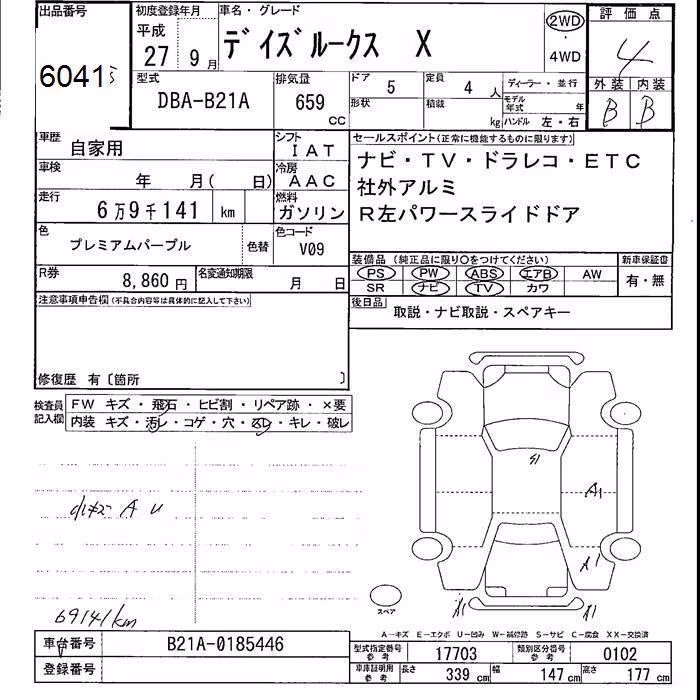 出品番号
60415
初度登録年月
平成
27 9月
車名・グレード
デイズルークス X
2WD
・
4WD
評価点
4
外装 内装
B B
型式
DBA-B21A
排気量
659
cc
ドア 5
形状
定員 4 人
積載 kg
ディーラー・並行
モデル年式 年
ハンドル 左・右
車歴
自家用
シフト
IAT
車検
年 月( 日)
冷房
AAC
走行
6万9千141 km
燃料
ガソリン
色
プレミアムパープル
色替
色コード
V09
R券
8,860円
名変通知期限
月 日
セールスポイント(正常に機能するものに限ります)
ナビ・TV・ドラレコ・ETC
社外アルミ
R左パワースライドドア
装備品(純正品に限り○をつけてください)
PS PW ABS エアB AW
SR ナビ TV カワ
新車保証書
有・無
後日品
取説・ナビ取説・スペアキー
注意事項申告欄(不具合内容等は具体的に記入して下さい)
修復歴 有〔箇所 〕
検査員
記入欄
FW キズ・飛石・ヒビ割・リペア跡・×要
内装 キズ・汚レ・コゲ・穴・スレ・キレ・破レ
A U
69141km
A1
A1
A1
A1
スペア
A-キズ E-エクボ U-凹み W-補修跡 S-サビ C-腐食 XX-交換済
車台番号
B21A-0185446
登録番号
型式指定番号
参考
17703
類別区分番号
参考
0102
車庫証明用
参考
長さ 339 cm
幅 147 cm
高さ 177 cm